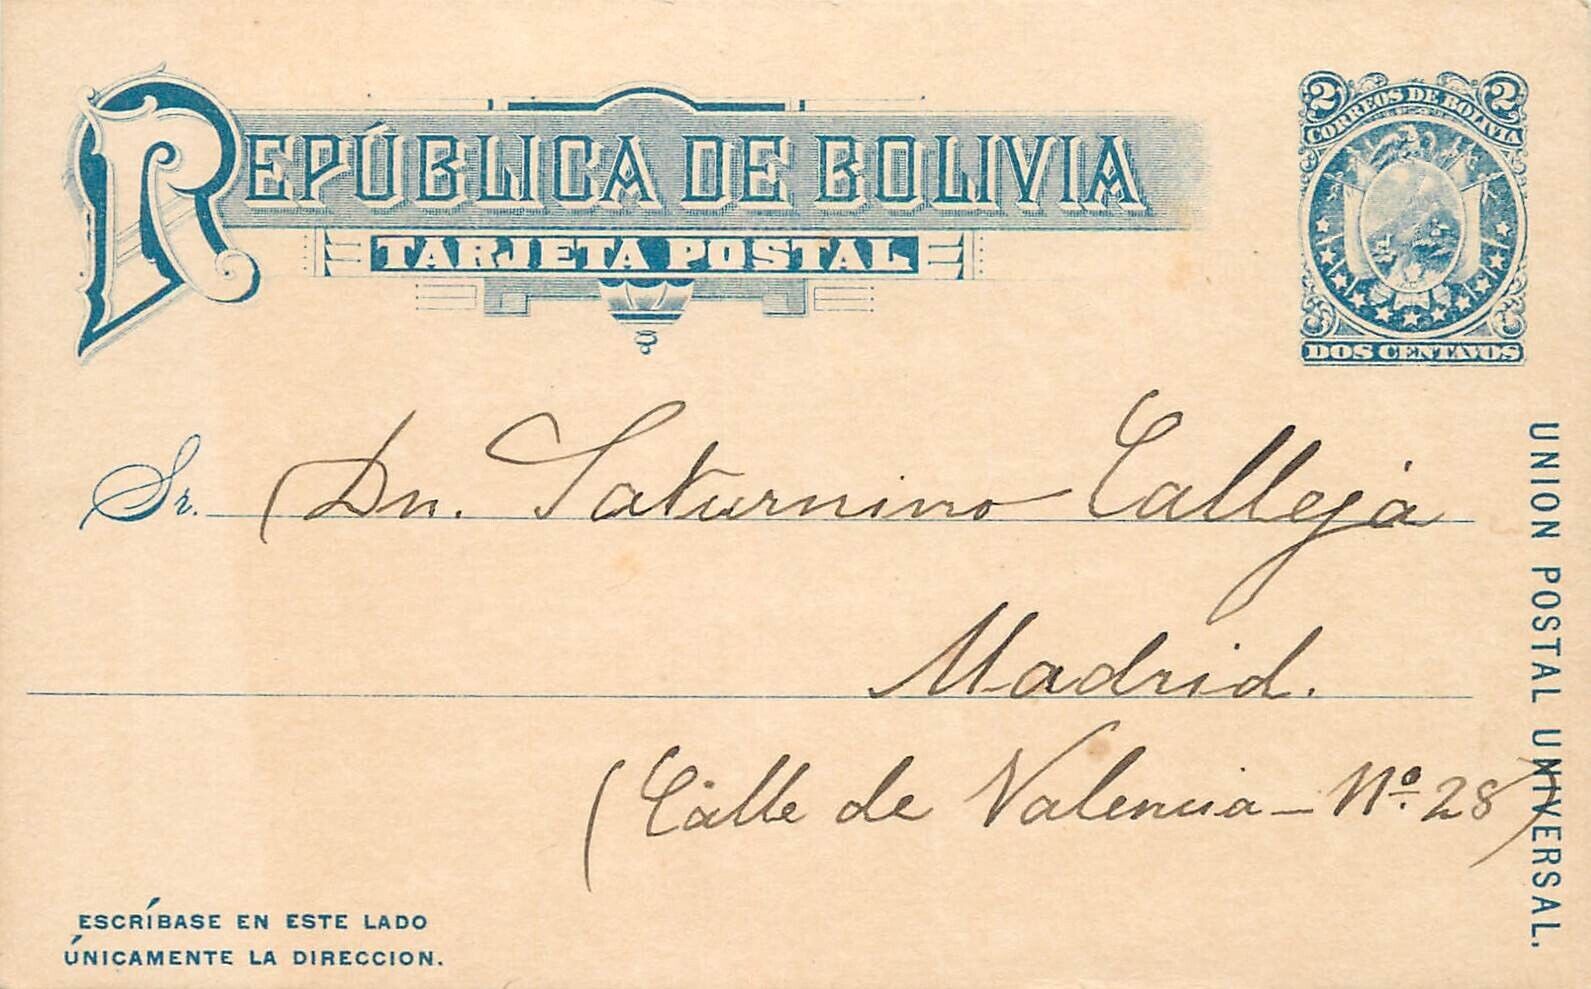 REPÚBLICA DE BOLIVIA
TARJETA POSTAL
2 CORREOS DE BOLIVIA 2
DOS CENTAVOS
Sr. (Dn. Saturnino Calleja
Madrid.
(Calle de Valencia - Nº. 28)
UNION POSTAL UNIVERSAL.
ESCRÍBASE EN ESTE LADO
ÚNICAMENTE LA DIRECCION.